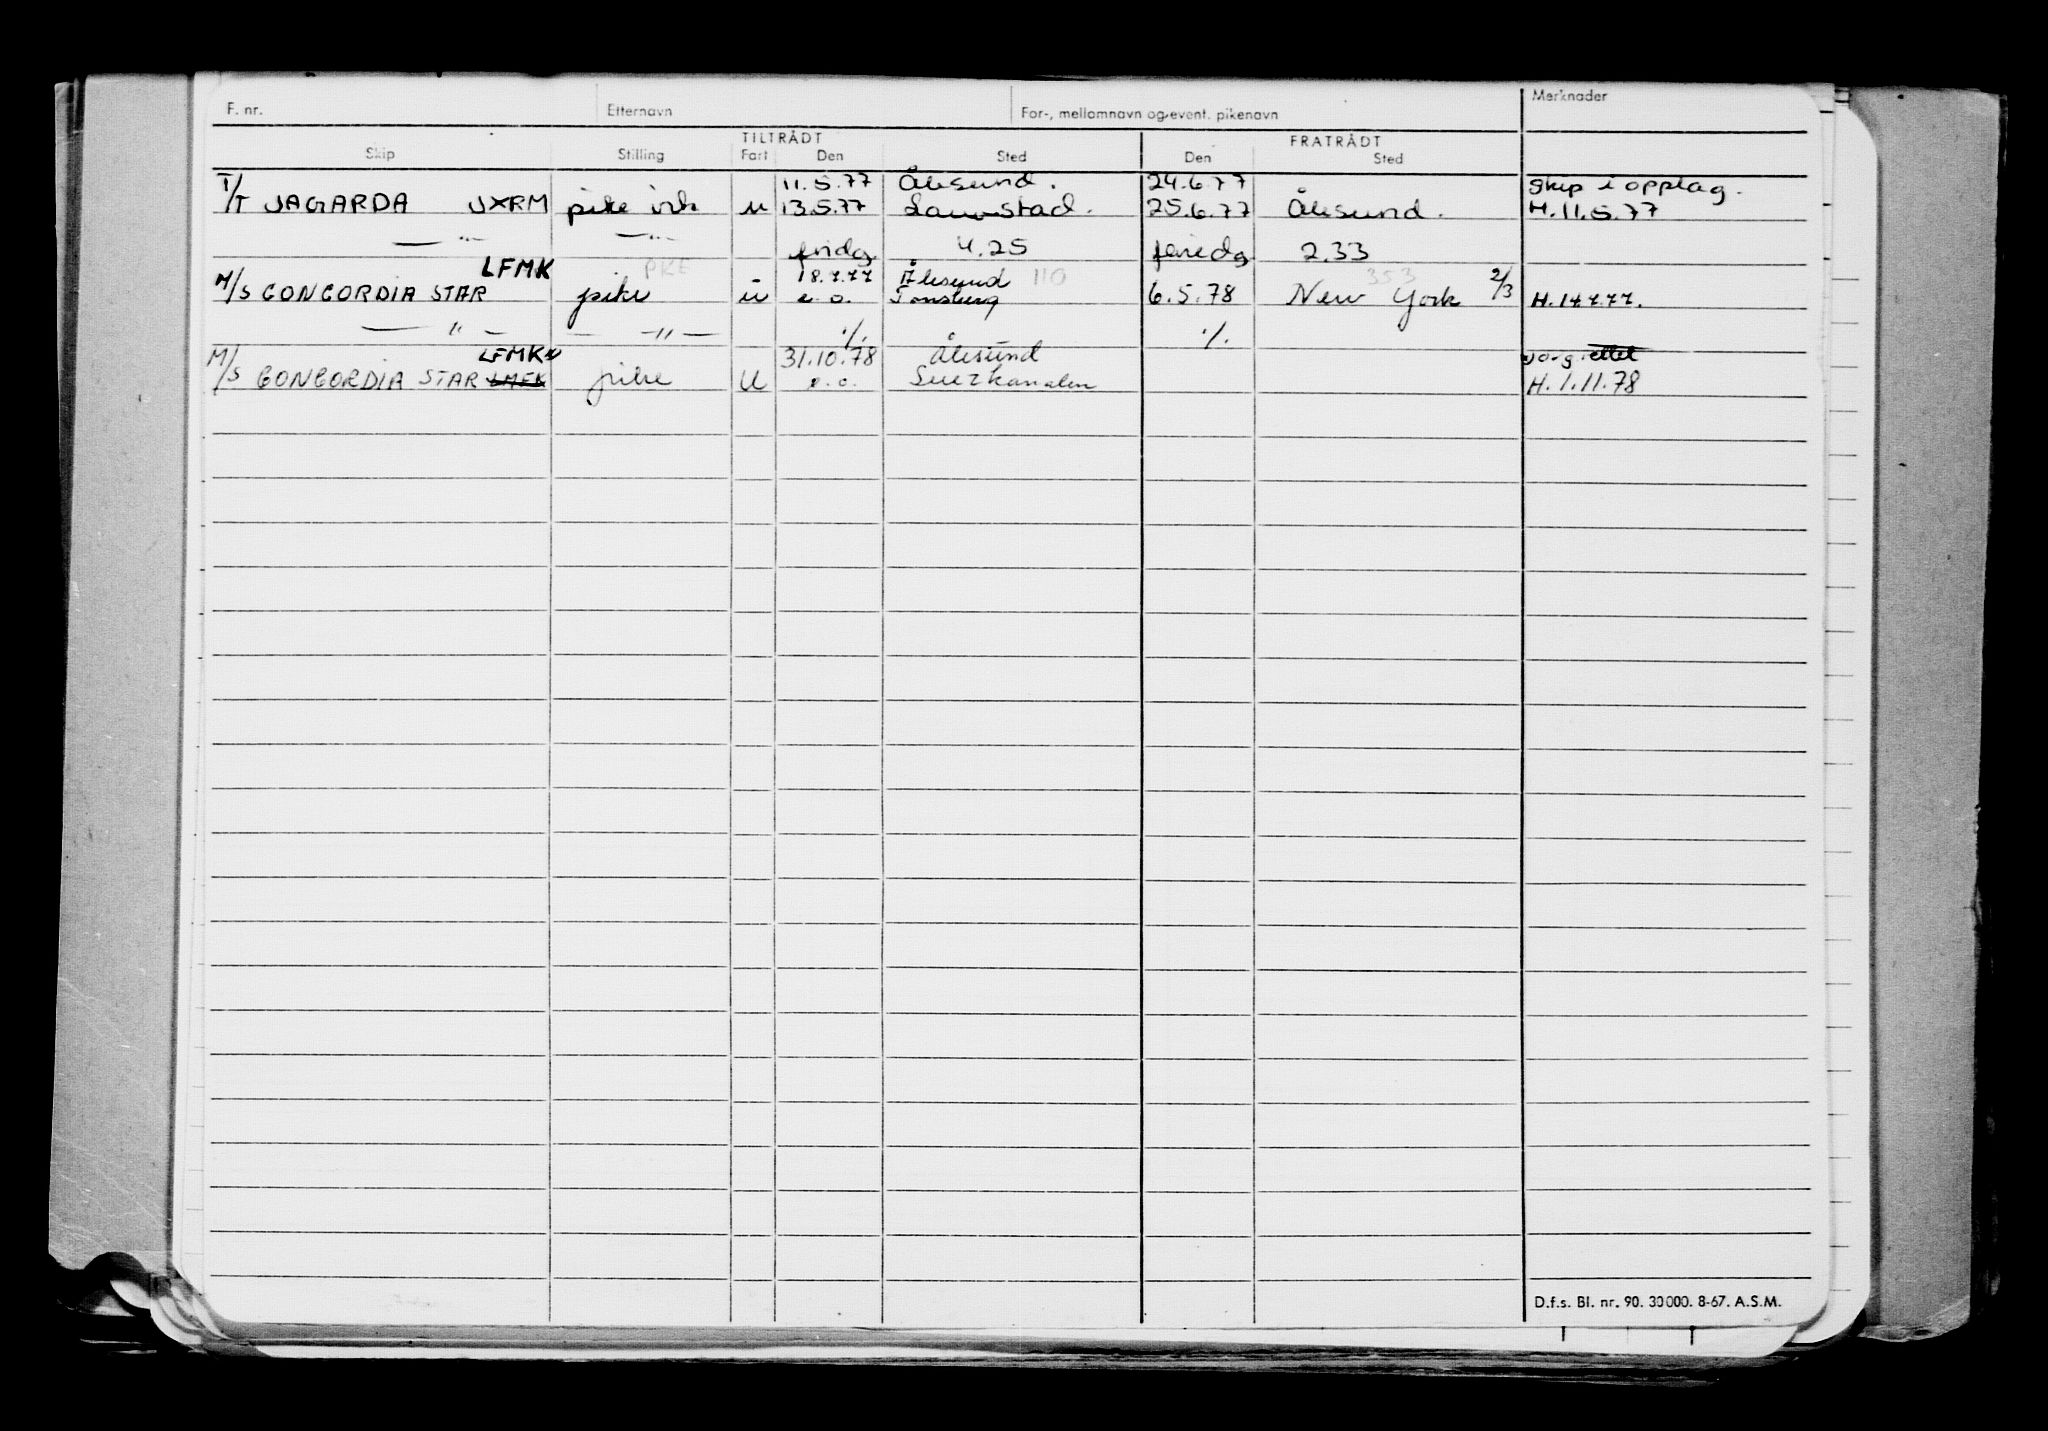 F. nr. Etternavn For-, mellomnavn og event. pikenavn Merknader
TILTRÅDT FRATRÅDT
Skip Stilling Fart Den Sted Den Sted
11.5.77 Ålesund. 24.6.77 Skip i opplag.
T/T JAGARDA JXRM pike vik u 13.5.77 25.6.77 Ålesund. H.11.5.77
— " — — " — fridg 4.25 feriedg 2.33
LFMK PKE 18.7.77 Ålesund 110 353
M/S CONCORDIA STAR pike u e.o. Tønsberg 6.5.78 New York 2/3 H.14.7.77.
— " — — " — ./. ./.
LFMK 31.10.78 Ålesund
M/S CONCORDIA STAR LMFK pike U e.o. Suezkanalen H.1.11.78
D.f.s. Bl. nr. 90. 30000. 8-67. A.S.M.